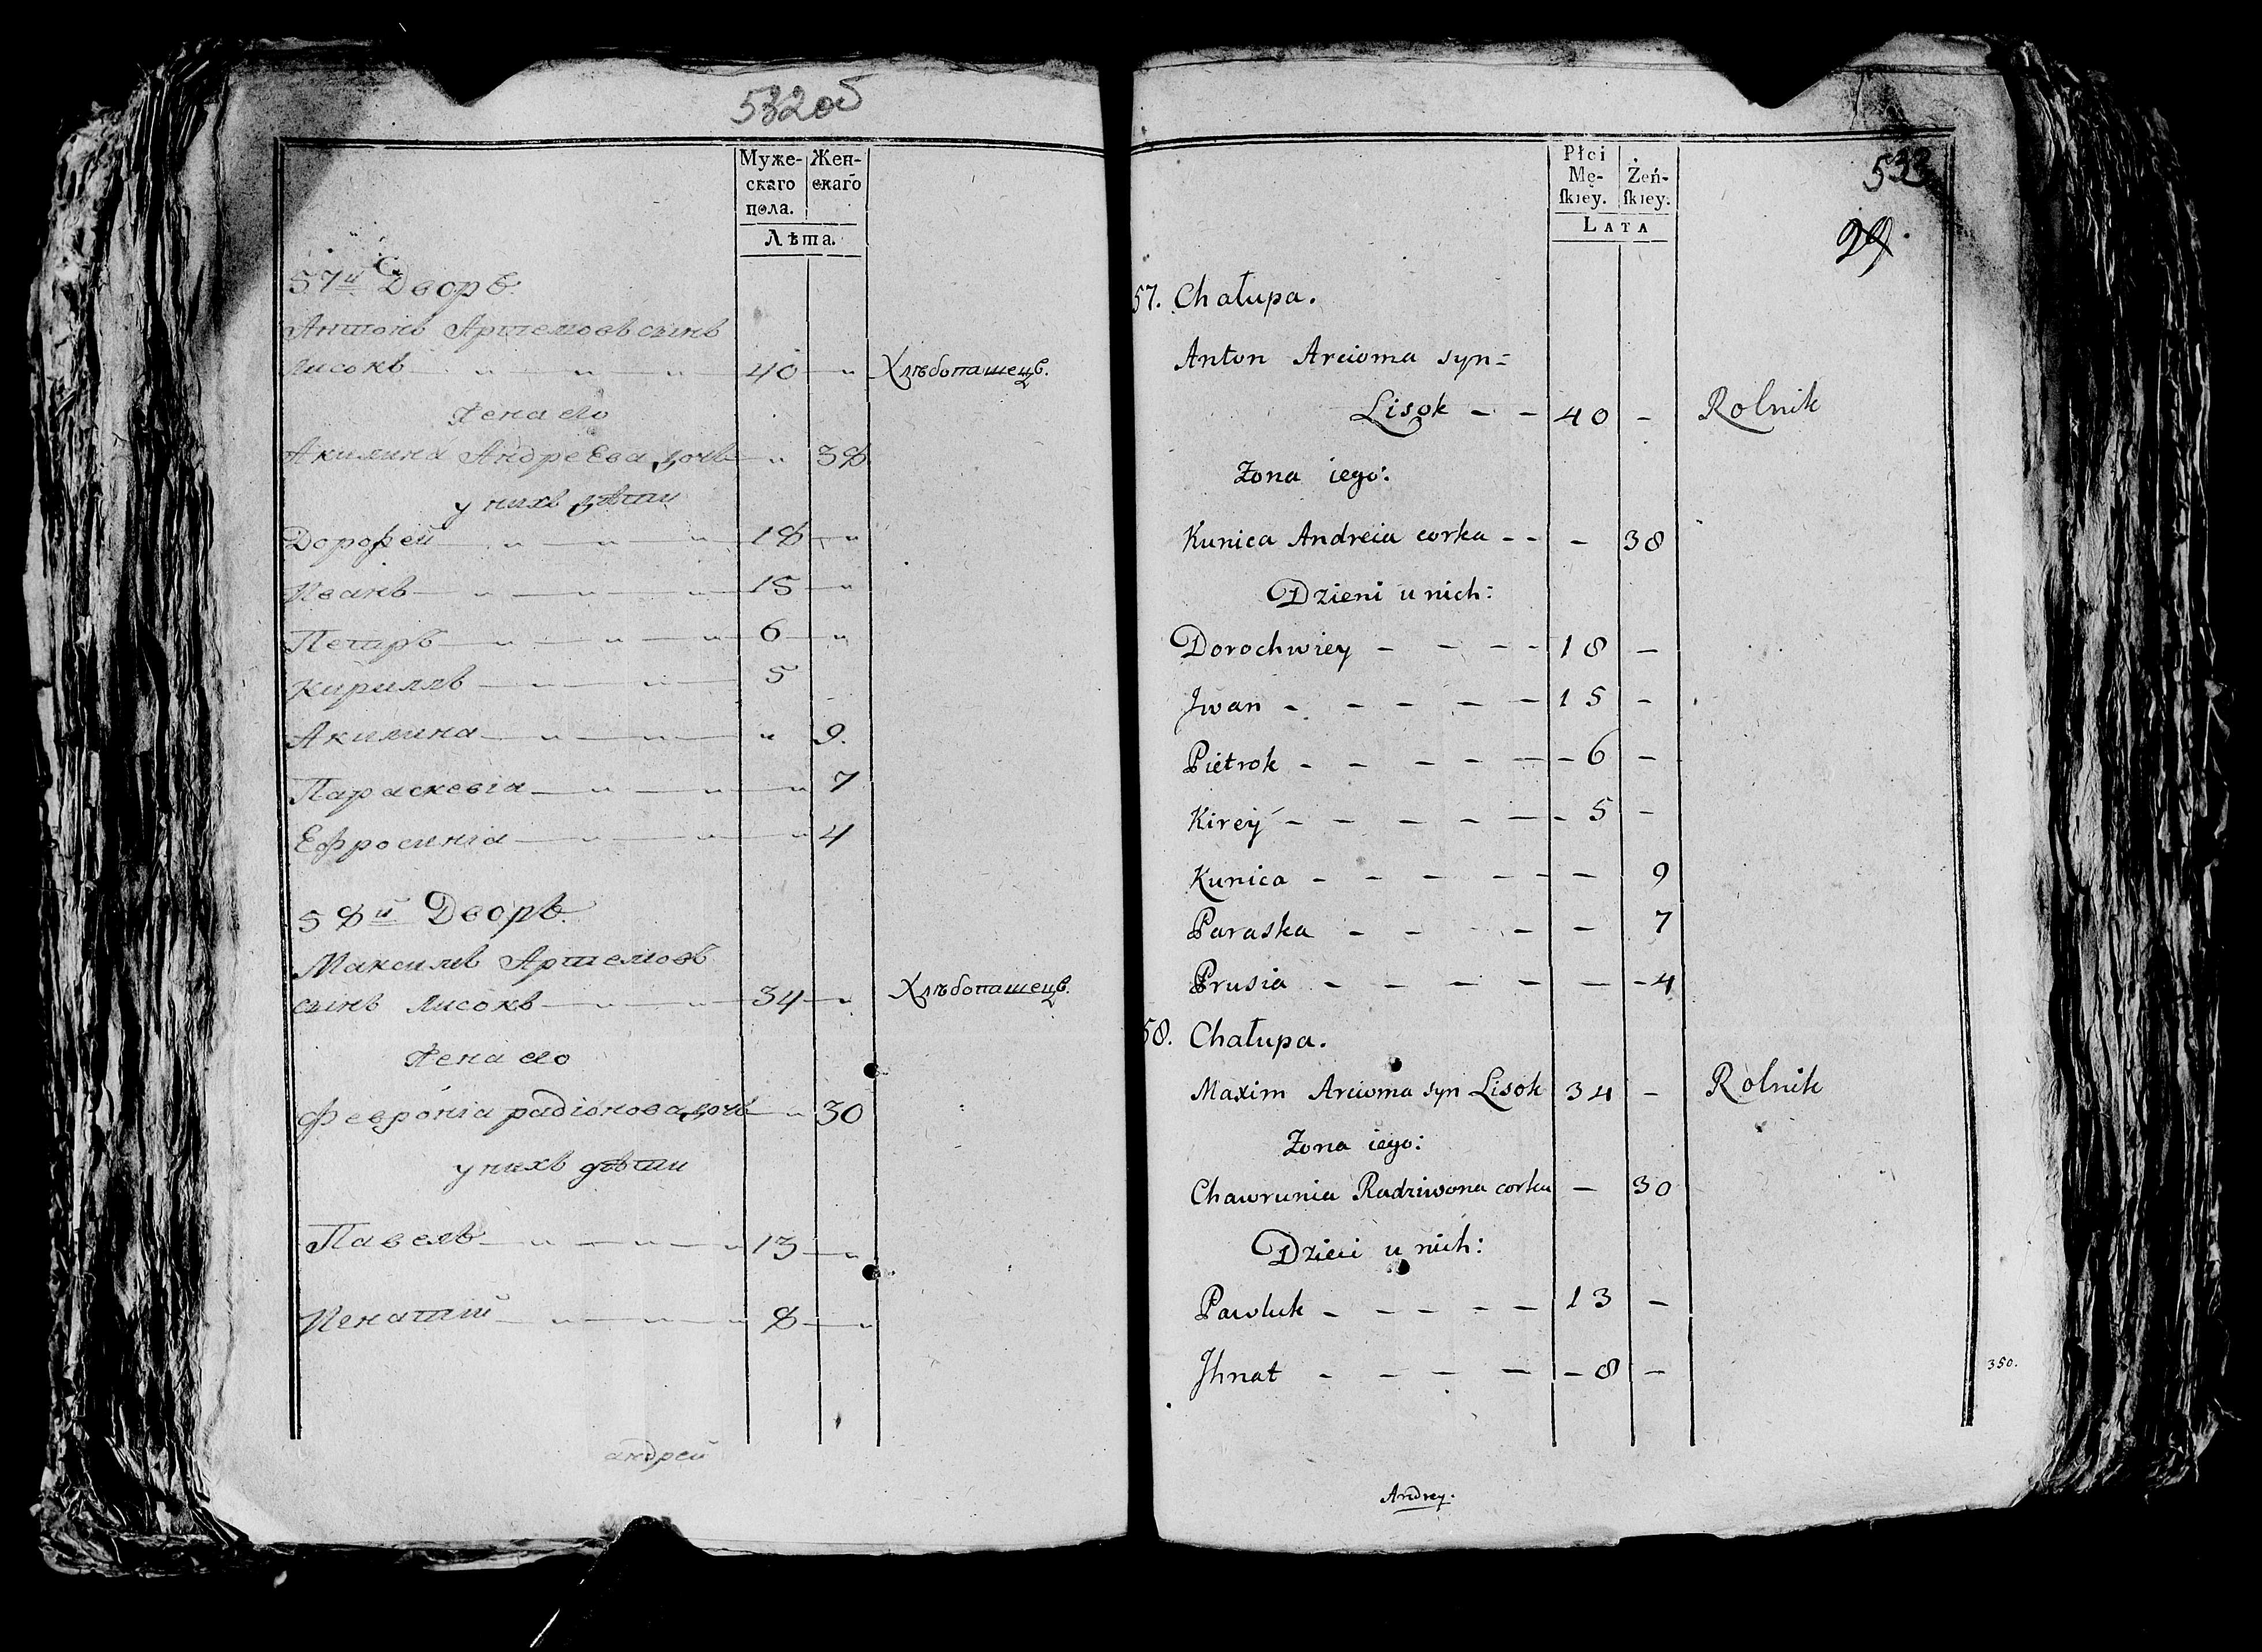 532об
Муже- Жен-
скаго скаго
пола.
Лѣта.
57й Дворъ.
Антонъ Артемовъ сынъ
Лисокъ 40 Хлѣбопашецъ.
Жена его
Акилина Андреева дочь 38
у нихъ дѣти
Дорофей 18
Иванъ 15
Петаръ 6
Кириллъ 5
Акилина 9.
Параскевіа 7
Ефросиніа 4
58й Дворъ.
Максимъ Артемовъ
сынъ Лисокъ 34 Хлѣбопашецъ.
Жена его
Февроніа радіонова дочь 30
у нихъ дѣти
Павелъ 13
Игнатий 8
андрей
533
29.
Płci
Mę- Żeń-
ſkiey. ſkiey.
LATA
57. Chałupa.
Anton Arcioma syn=
Lisok - - 40 - Rolnik
Żona iego:
Kunica Andreia corka - - - 38
Dzieni u nich:
Dorochwiey - - - - 18 -
Jwan - - - - - 15 -
Pietrok - - - - - - 6 -
Kirey - - - - - - 5 -
Kunica - - - - - - 9
Paraska - - - - - 7
Prusia - - - - - - - 4
58. Chałupa.
Maxim Arcioma syn Lisok 34 - Rolnik
Żona iego:
Chawrunia Radziwona corka - 30
Dzieci u nich:
Pawluk - - - - - 13 -
Jhnat - - - - - 8 -
350.
Andrey.